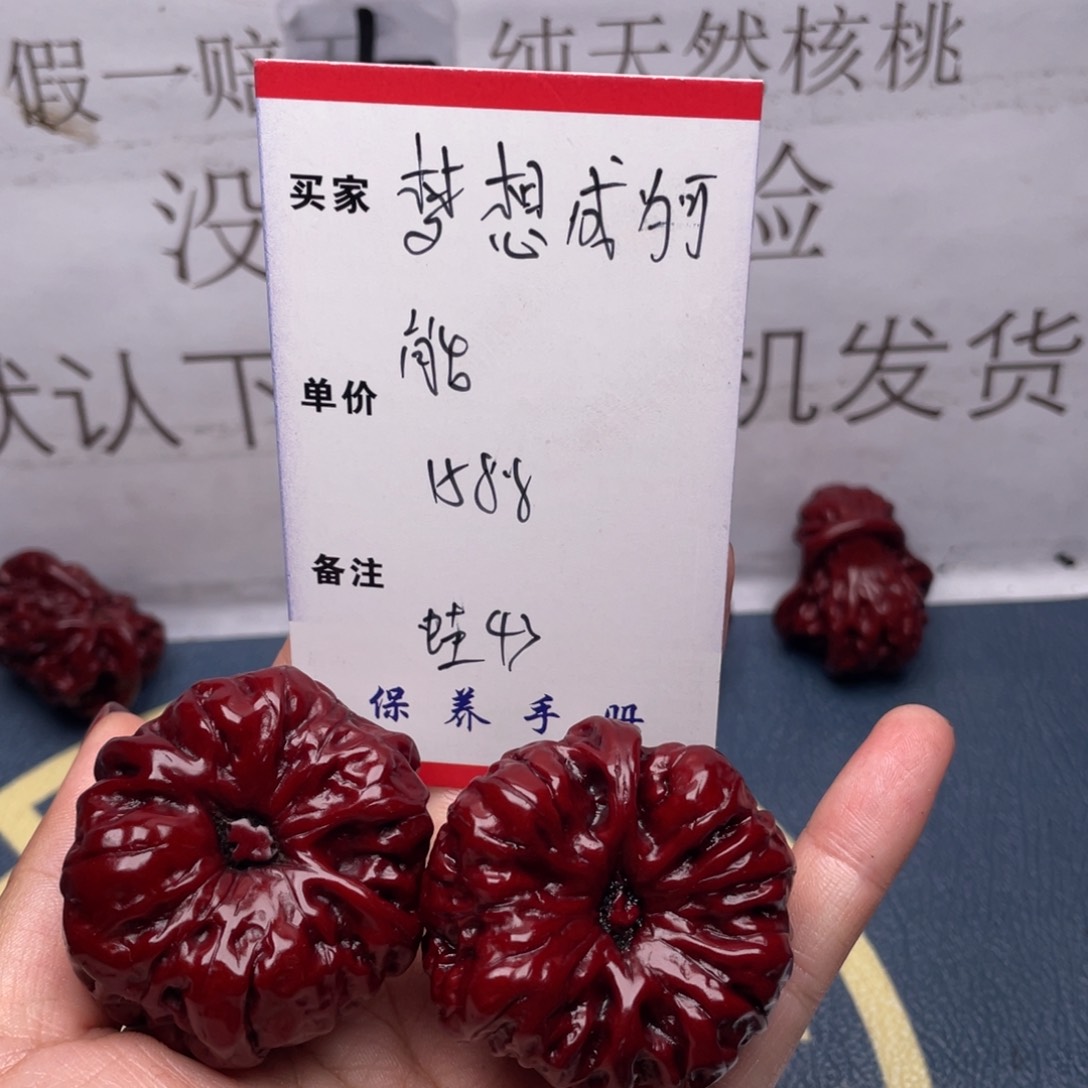 假一赔
纯天然核桃
没
险
默认下
机发货
买家 梦想成为可
能
单价
1588
备注
蛙47
保养手册